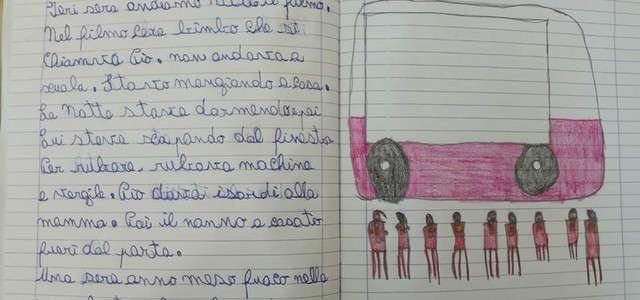 Ieri sera andiamo filmo.
Nel filmo cera bimbo che si
chiamava Pio. non andava a
scuola. Stavo mangiando a casa.
La Notte stava dormendo e poi
Lui steva scapando dal finestra
Per rubare. rubava machina
e vergile. Pio dava i sordi alla
mamma. Poi il nonno a casato
fuori dal porta.
Una sera anno meso fuoco nella